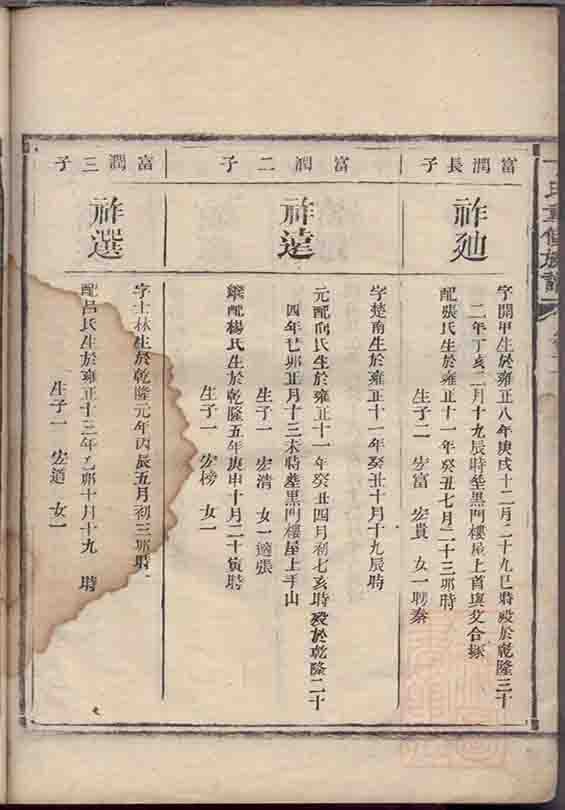 富潤長子
祚廸
字開甲生於雍正八年庚戌十二月二十九巳時殁於乾隆三十
二年丁亥二月十九辰時塟黒門樓屋上首與父合塚
配張氏生於雍正十一年癸丑七月二十三卯時
生子二 宏富 宏貴 女一聘秦
富潤二子
祚逵
字楚南生於雍正十一年癸丑十月十九辰時
元配向氏生於雍正十一年癸丑四月初七亥時殁於乾隆二十
四年己卯正月十三未時塟黒門樓屋上手山
生子一 宏清 女一適張
繼配楊氏生於乾隆五年庚申十月二十寅時
生子一 宏榜 女二
富潤三子
祚選
字士林生於乾隆元年丙辰五月初三卯時
配呂氏生於雍正十三年乙卯十月十九 時
生子一 宏道 女一
氏重修族譜